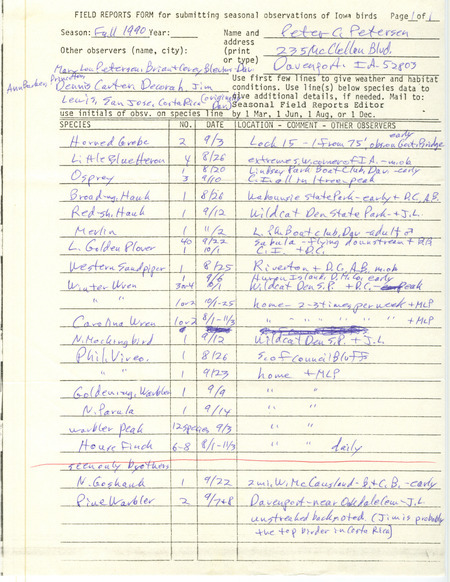 FIELD REPORTS FORM for submitting seasonal observations of Iowa birds Page 1 of 1
Season: Fall 1990 Year: Name and Peter C. Petersen
address
Other observers (name, city): (print 235 McClellan Blvd.
or type) Davenport, IA 52803
Mary Lou Petersen, Brian Dav.
Ann Barker, Princeton
Dennis Carter, Decorah, Jim
Lewis, San Jose, Costa Rica (originally Dav)
Use first few lines to give weather and habitat
conditions. Use line(s) below species data to
give additional details, if needed. Mail to:
Seasonal Field Reports Editor
use initials of obsv. on species line by 1 Mar, 1 Jun, 1 Aug, or 1 Dec.
SPECIES NO. DATE LOCATION - COMMENT - OTHER OBSERVERS
Horned Grebe 2 9/3 Lock 15 - from 75' Govt. Bridge early
Little Blue Heron 4 8/26 extreme s.w. corner of IA. - m.ob
Osprey 1 8/20 Lindsay Park Boat Club, Dav - early
3 9/10 peak
Broad-wg. Hawk 1 8/26 Waubonsie State Park - early + D.C. A.B.
Red-sh. Hawk 1 9/12 Wildcat Den State Park + J.L.
Merlin 1 11/2 L. Pk Boat club, Dav - adult ♂
L. Golden Plover 40 9/22 Sabula - flying downstream +
1 10/1 C. I. + D.C.
Western Sandpiper 1 8/25 Riverton + D.C. A.B. m.ob
1 Huron Island, D.M. Co. early
Winter Wren 3 or 4 Wildcat Den S.P. + D.C. - peak
" " 1 or 2 10/1-25 home - 2-3 times per week + MLP
Carolina Wren 1 or 2 8/1-11/3 " - " " " " + MLP
N. Mockingbird 1 9/12 Wildcat Den S.P. + J.L.
Phil. Vireo 1 8/26 S. of Council Bluffs
" " 1 9/23 home + MLP
Golden-wing. Warbler 1 9/9 " "
N. Parula 1 9/14 " "
warbler peak 12 species 9/3 " "
House Finch 6-8 8/1-11/3 " " daily
seen only by others
N. Goshawk 1 9/22 2 mi. W. McCausland - B. + C. B. - early
Pine Warbler 2 9/7+8 Davenport - near Oakdale Cem - J.L.
unstreaked back noted. (Jim is probably
the top birder in Costa Rica)